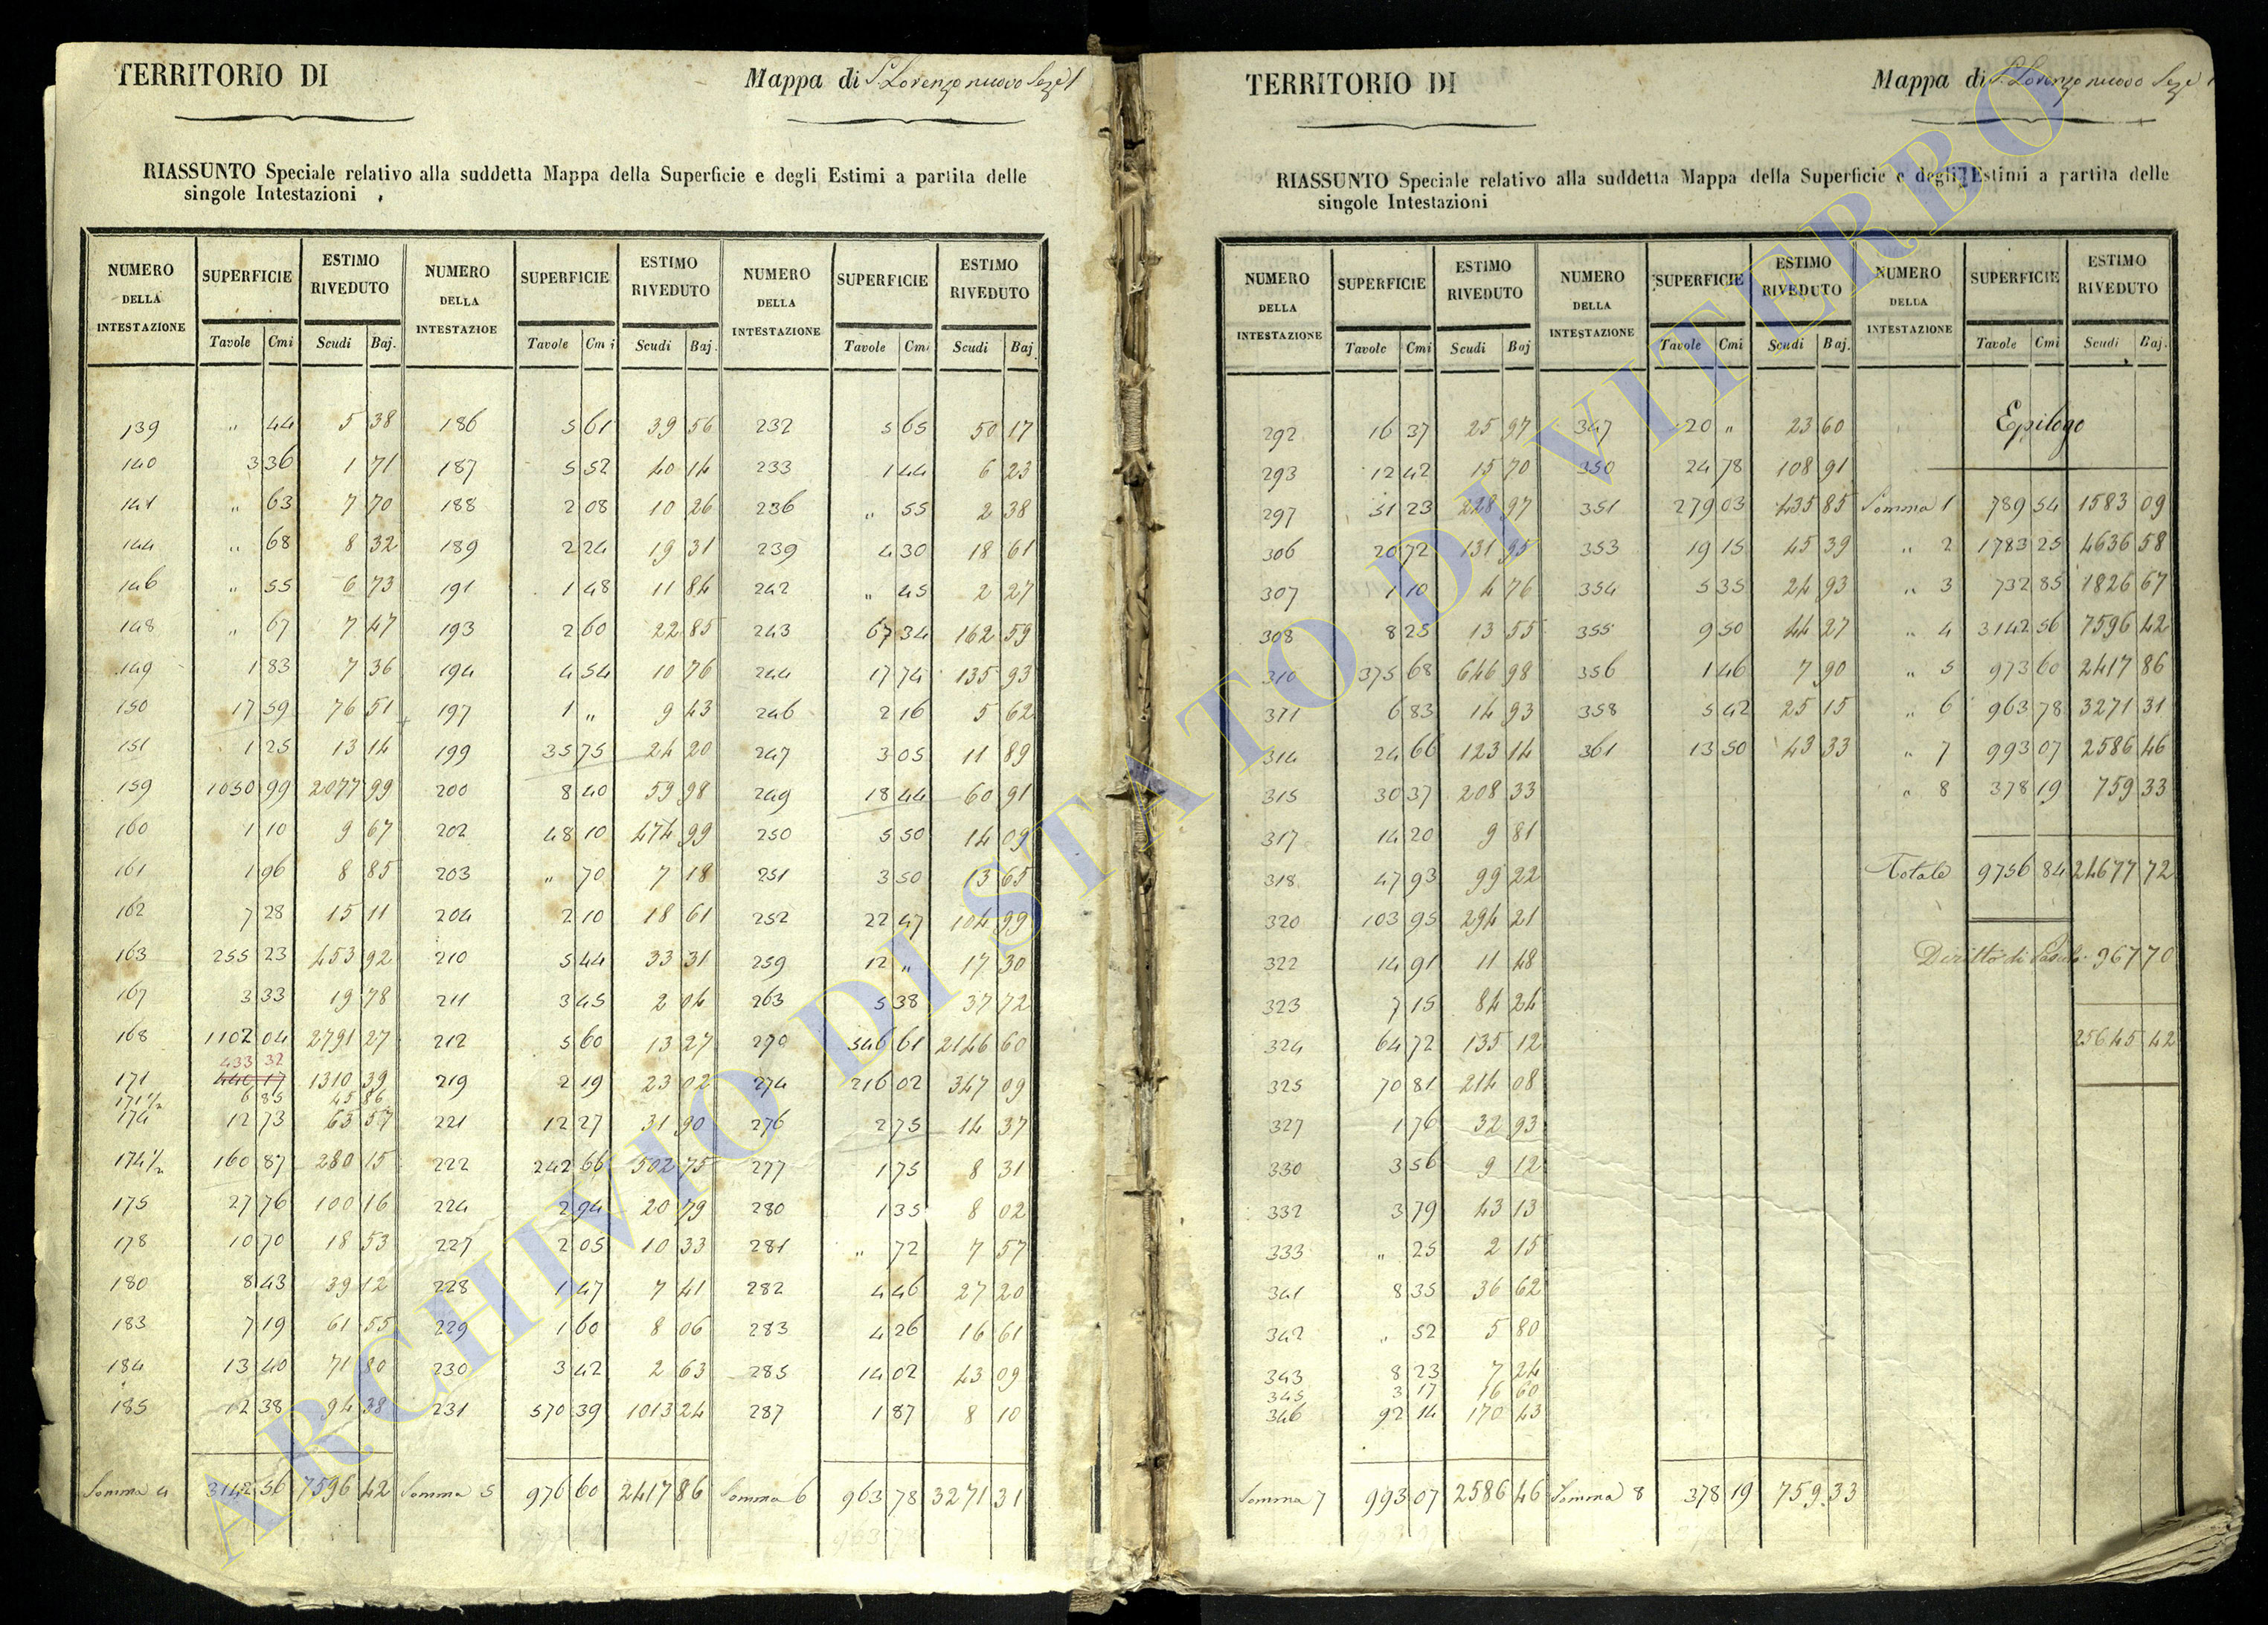 TERRITORIO DI
Mappa di S. Lorenzo nuovo Sez.e 1
RIASSUNTO Speciale relativo alla suddetta Mappa della Superficie e degli Estimi a partita delle
singole Intestazioni
NUMERO DELLA INTESTAZIONE SUPERFICIE ESTIMO RIVEDUTO NUMERO DELLA INTESTAZIOE SUPERFICIE ESTIMO RIVEDUTO NUMERO DELLA INTESTAZIONE SUPERFICIE ESTIMO RIVEDUTO
Tavole Cmi Scudi Baj. Tavole Cmi Scudi Baj. Tavole Cmi Scudi Baj
139 „ 44 5 38 186 5 61 39 56 232 5 65 50 17
140 3 36 1 71 187 5 52 40 14 233 1 44 6 23
141 „ 63 7 70 188 2 08 10 26 236 „ 55 2 38
144 „ 68 8 32 189 2 24 19 31 239 4 30 18 61
146 „ 55 6 73 191 1 48 11 84 242 „ 45 2 27
148 „ 67 7 47 193 2 60 22 85 243 67 34 162 59
149 1 83 7 36 194 4 54 10 76 244 17 74 135 93
150 17 59 76 51 197 1 „ 9 43 246 2 16 5 62
151 1 25 13 14 199 35 75 24 20 247 3 05 11 89
159 1030 99 2077 99 200 8 40 59 98 249 18 44 60 91
160 1 10 9 67 202 48 10 474 99 250 5 50 14 09
161 1 96 8 85 203 „ 70 7 18 251 3 50 13 65
162 7 28 15 11 204 2 10 18 61 252 22 47 104 99
163 255 23 453 92 210 5 44 33 31 259 12 „ 17 30
167 3 33 19 78 211 3 45 2 04 263 5 38 37 72
168 1102 04 2791 27 212 5 60 13 27 270 546 61 2146 60
433 32
171 440 17 1310 39 219 2 19 23 02 274 216 02 347 09
171 1/2 6 85 45 86
174 12 73 65 57 221 12 27 31 90 276 2 75 14 37
174 1/2 160 87 280 15 222 242 66 502 75 277 1 75 8 31
175 27 76 100 16 224 2 94 20 79 280 1 35 8 02
178 10 70 18 53 227 2 05 10 33 281 „ 72 7 57
180 8 43 39 12 228 1 47 7 41 282 4 46 27 20
183 7 19 61 55 229 1 60 8 06 283 4 26 16 61
184 13 40 71 80 230 3 42 2 63 285 14 02 43 09
185 12 38 94 38 231 570 39 1013 24 287 1 87 8 10
Somma 4 3142 56 7596 42 Somma 5 976 60 2417 86 Somma 6 963 78 3271 31
TERRITORIO DI
Mappa di S. Lorenzo nuovo Sez.e 1
RIASSUNTO Speciale relativo alla suddetta Mappa della Superficie e degli Estimi a partita delle
singole Intestazioni
NUMERO DELLA INTESTAZIONE SUPERFICIE ESTIMO RIVEDUTO NUMERO DELLA INTESTAZIONE SUPERFICIE ESTIMO RIVEDUTO NUMERO DELLA INTESTAZIONE SUPERFICIE ESTIMO RIVEDUTO
Tavole Cmi Scudi Baj Tavole Cmi Scudi Baj. Tavole Cmi Scudi Baj.
292 16 37 25 97 347 20 „ 23 60 Epilogo
293 12 42 15 70 350 24 78 108 91
297 31 23 228 97 351 279 03 435 85 Somma 1 789 54 1583 09
306 20 72 131 95 353 19 15 45 39 „ 2 1783 25 4636 58
307 1 10 4 76 354 5 35 24 93 „ 3 732 85 1826 67
308 8 25 13 55 355 9 50 44 27 „ 4 3142 56 7596 42
310 375 68 646 98 356 1 46 7 90 „ 5 973 60 2417 86
311 6 83 14 93 358 5 42 25 15 „ 6 963 78 3271 31
314 24 66 123 14 361 13 50 43 33 „ 7 993 07 2586 46
315 30 37 208 33 „ 8 378 19 759 33
317 14 20 9 81
318 47 93 99 22 Totale 9756 84 24677 72
320 103 95 294 21
322 14 91 11 48 Diritto di Pascolo 967 70
323 7 15 84 24
324 64 72 135 12 25645 42
325 70 81 214 08
327 1 76 32 93
330 3 56 9 12
332 3 79 43 13
333 „ 25 2 15
341 8 35 36 62
342 „ 52 5 80
343 8 23 7 24
345 3 17 16 60
346 92 14 170 43
Somma 7 993 07 2586 46 Somma 8 378 19 759 33
ARCHIVIO DI STATO DI VITERBO